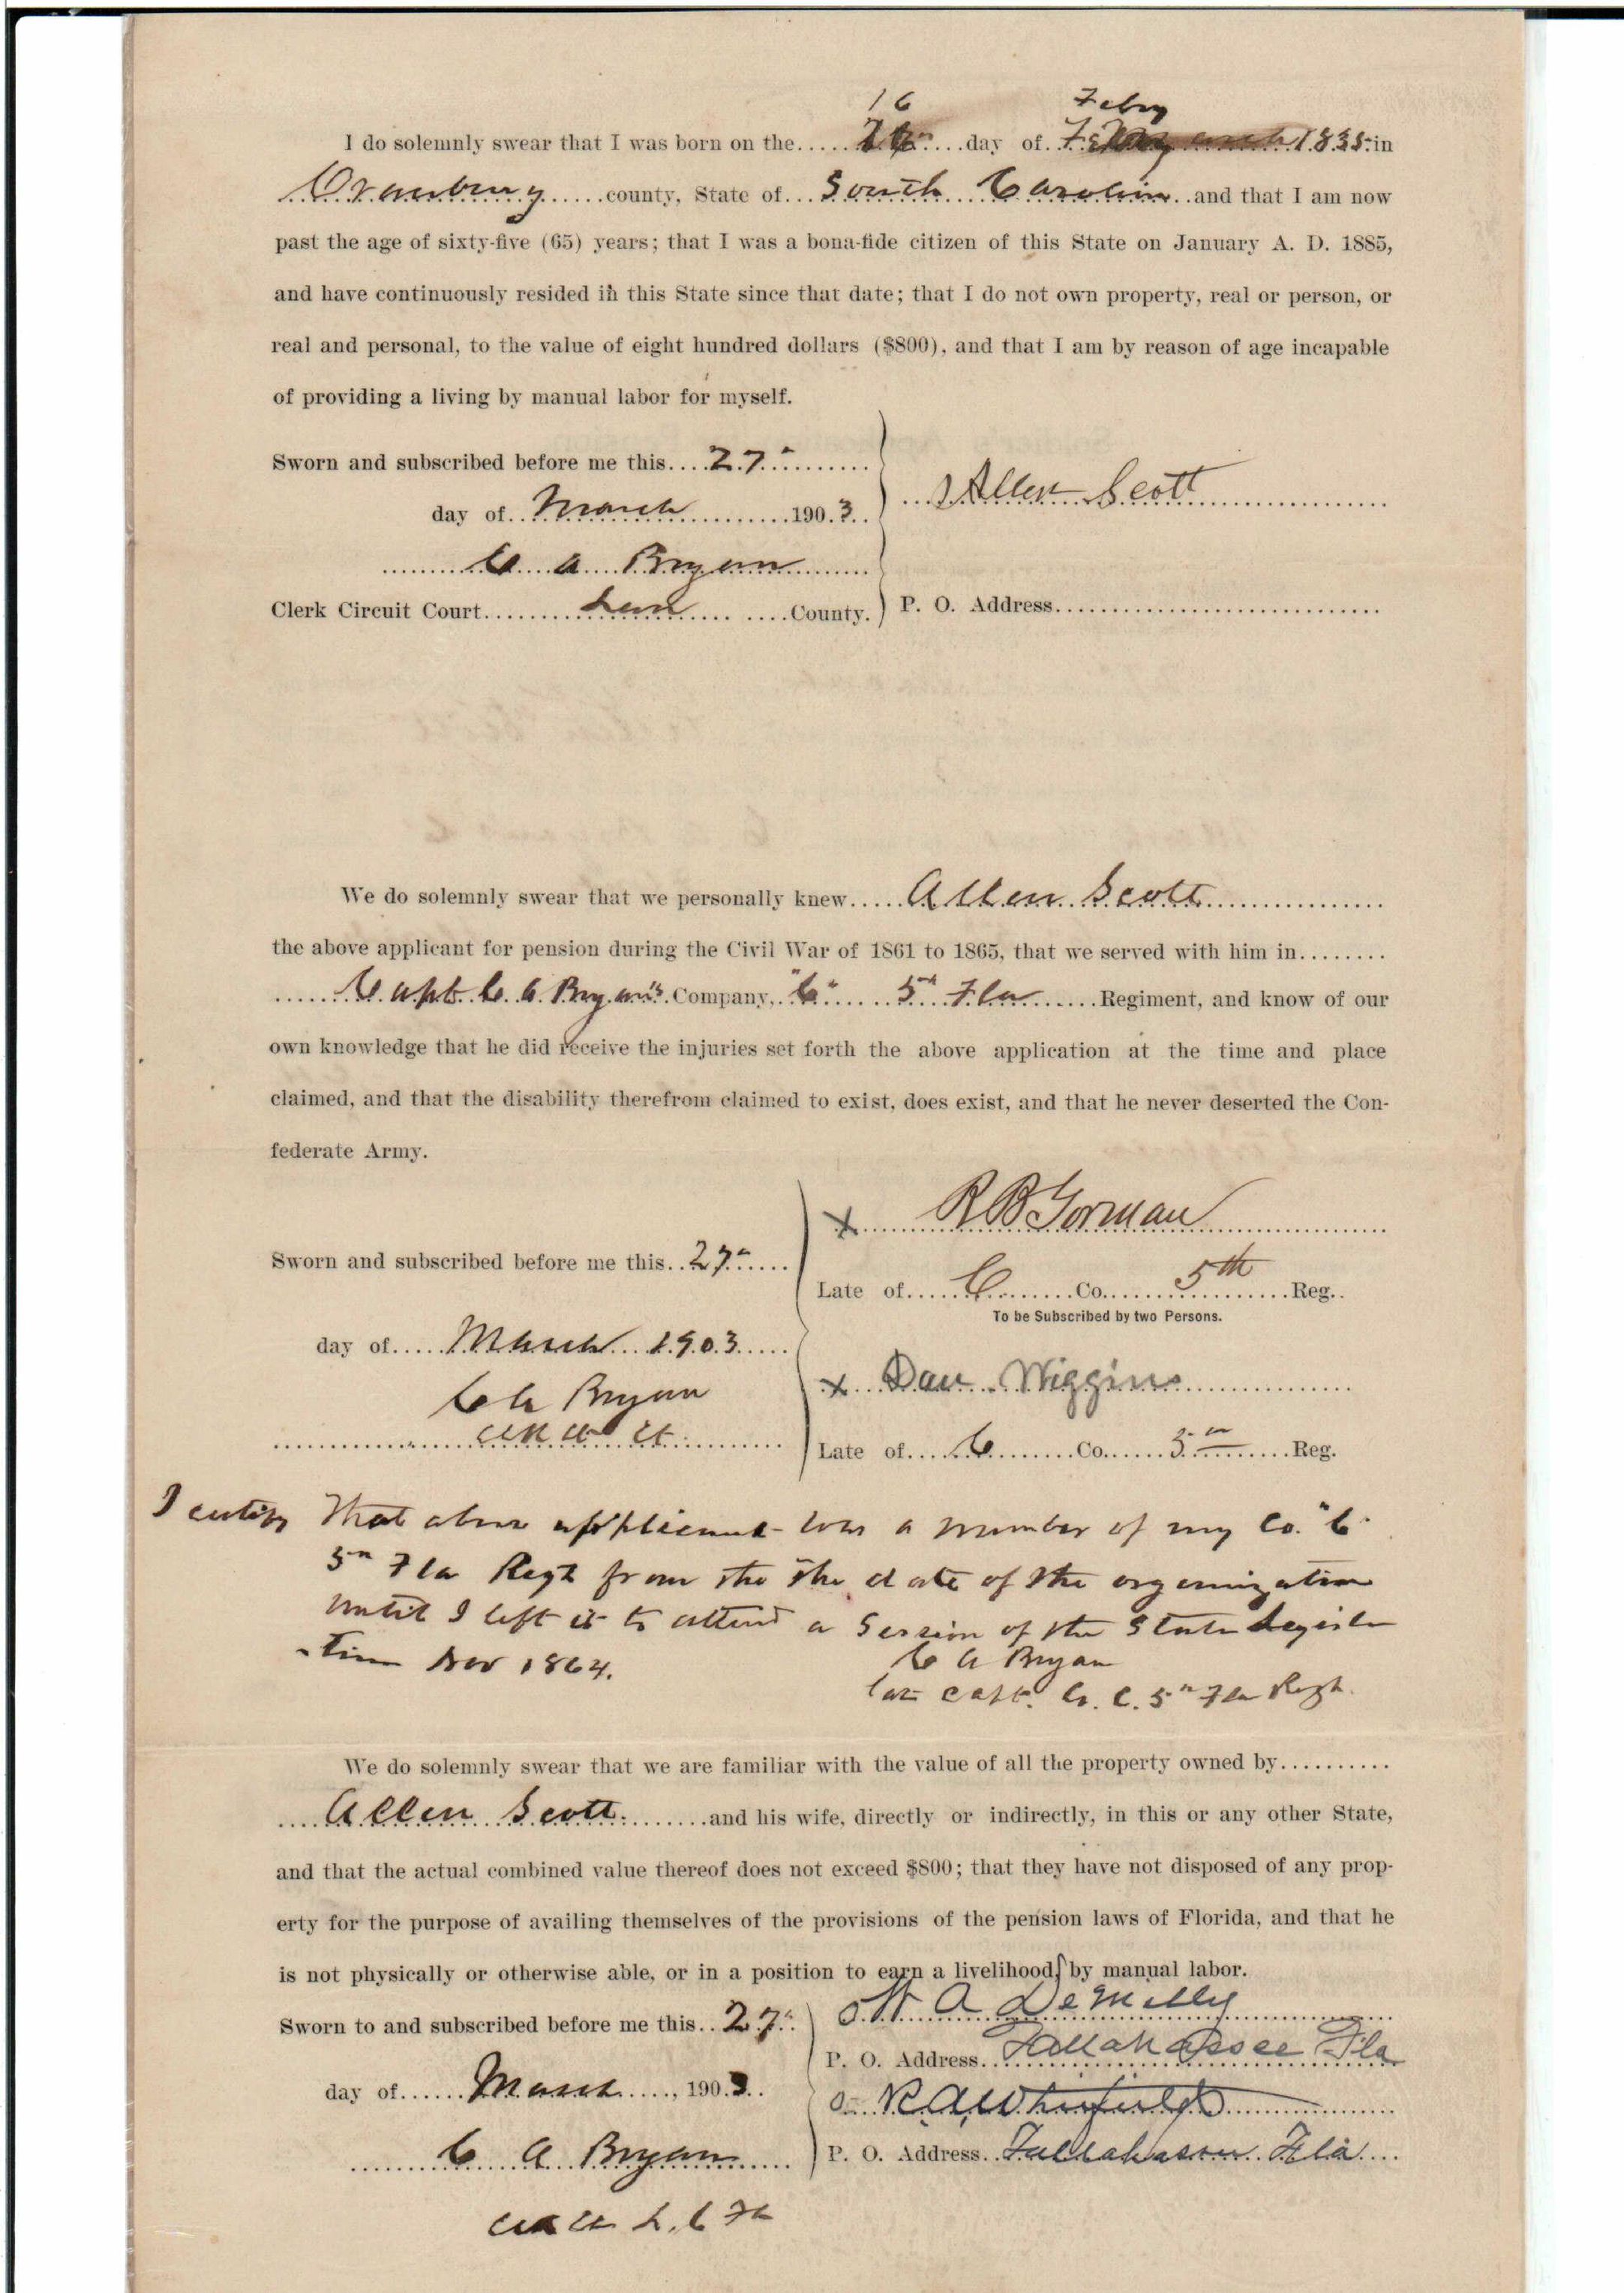 16 Feby
I do solemnly swear that I was born on the..... ....day of.. 1835 in
Oranburg......county, State of...South Carolina..and that I am now
past the age of sixty-five (65) years; that I was a bona-fide citizen of this State on January A. D. 1885,
and have continuously resided in this State since that date; that I do not own property, real or person, or
real and personal, to the value of eight hundred dollars ($800), and that I am by reason of age incapable
of providing a living by manual labor for myself.
Sworn and subscribed before me this....27"..........
day of..March............190.3..
Allen Scott
C A Bryan
Clerk Circuit Court........Leon........County.
P. O. Address..............................
We do solemnly swear that we personally knew.....Allen Scott................
the above applicant for pension during the Civil War of 1861 to 1865, that we served with him in........
......Capt C. A. Bryan's.Company,."C"....5th Fla......Regiment, and know of our
own knowledge that he did receive the injuries set forth the above application at the time and place
claimed, and that the disability therefrom claimed to exist, does exist, and that he never deserted the Con-
federate Army.
x R B Gorman
Sworn and subscribed before me this..27".....
Late of.....C........Co.....5th......Reg..
To be Subscribed by two Persons.
day of.....March 1903.....
x Dan Wiggins
C A Bryan
Clk Ct Ct
Late of....C........Co......5th........Reg.
I certify that above applicant was a member of my Co. "C"
5th Fla Regt from the the date of the organization
until I left it to attend a Session of the State Legisla
-ture Nov 1864.
C A Bryan
late Capt. Co. C. 5th Fla Regt.
We do solemnly swear that we are familiar with the value of all the property owned by..........
....Allen Scott.......and his wife, directly or indirectly, in this or any other State,
and that the actual combined value thereof does not exceed $800; that they have not disposed of any prop-
erty for the purpose of availing themselves of the provisions of the pension laws of Florida, and that he
is not physically or otherwise able, or in a position to earn a livelihood, by manual labor.
Sworn to and subscribed before me this..27"..
W A DeMilly
P. O. Address..Tallahassee Fla
day of......March....., 1903..
R A Whitfield
C A Bryan
P. O. Address..Tallahassee Fla....
Clk Ct L. C Fla